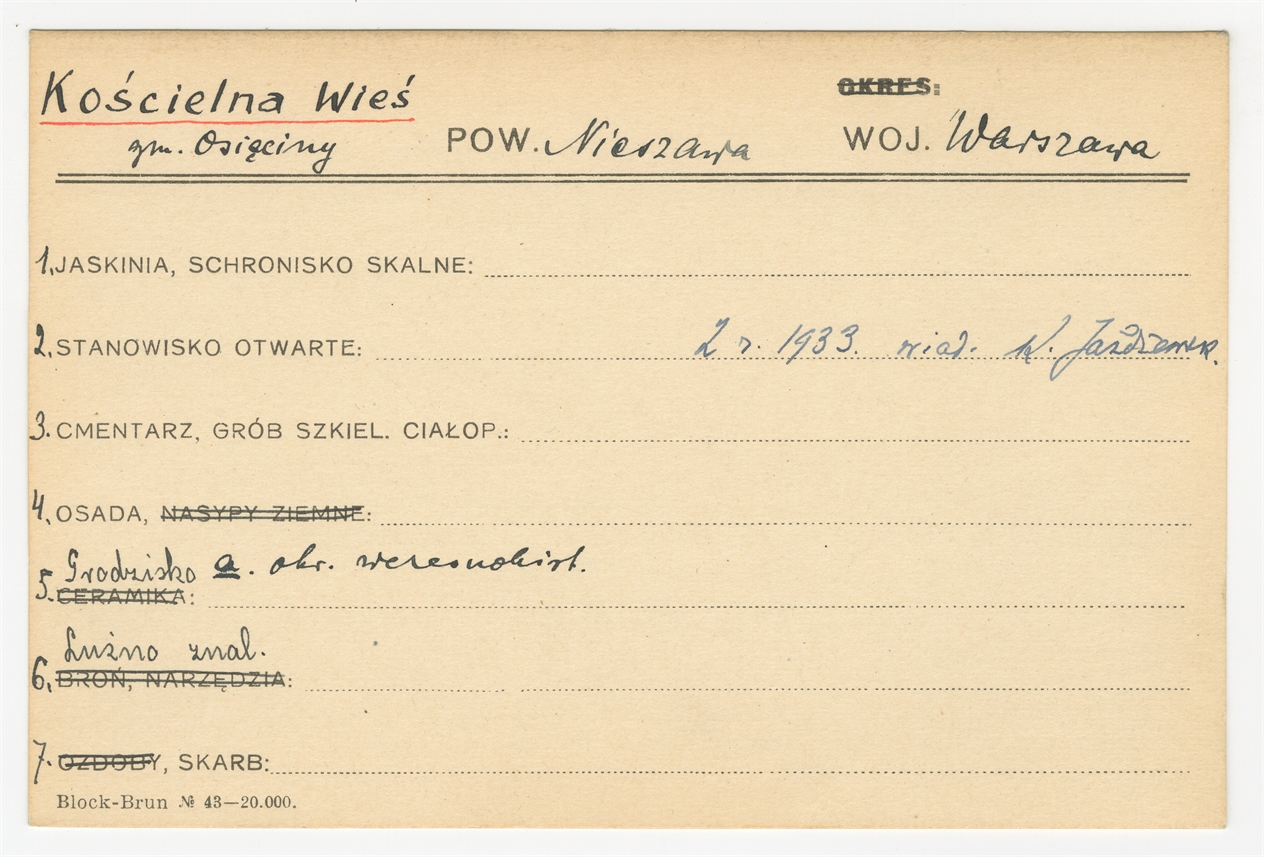 Kościelna Wieś OKRES:
gm. Osięciny POW. Nieszawa WOJ. Warszawa
1. JASKINIA, SCHRONISKO SKALNE:
2. STANOWISKO OTWARTE: Z r. 1933. wiad. K. Jażdżewsk.
3. CMENTARZ, GRÓB SZKIEL. CIAŁOP.:
4. OSADA, NASYPY ZIEMNE:
Grodzisko a. okr. wczesnohist.
5. CERAMIKA:
Luźno znal.
6. BROŃ, NARZĘDZIA:
7. OZDOBY, SKARB:
Block-Brun № 43—20.000.